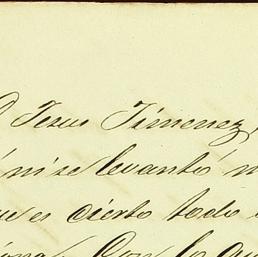 Jesus Jimenez,
ni se levantó
es cierto todo
Con lo